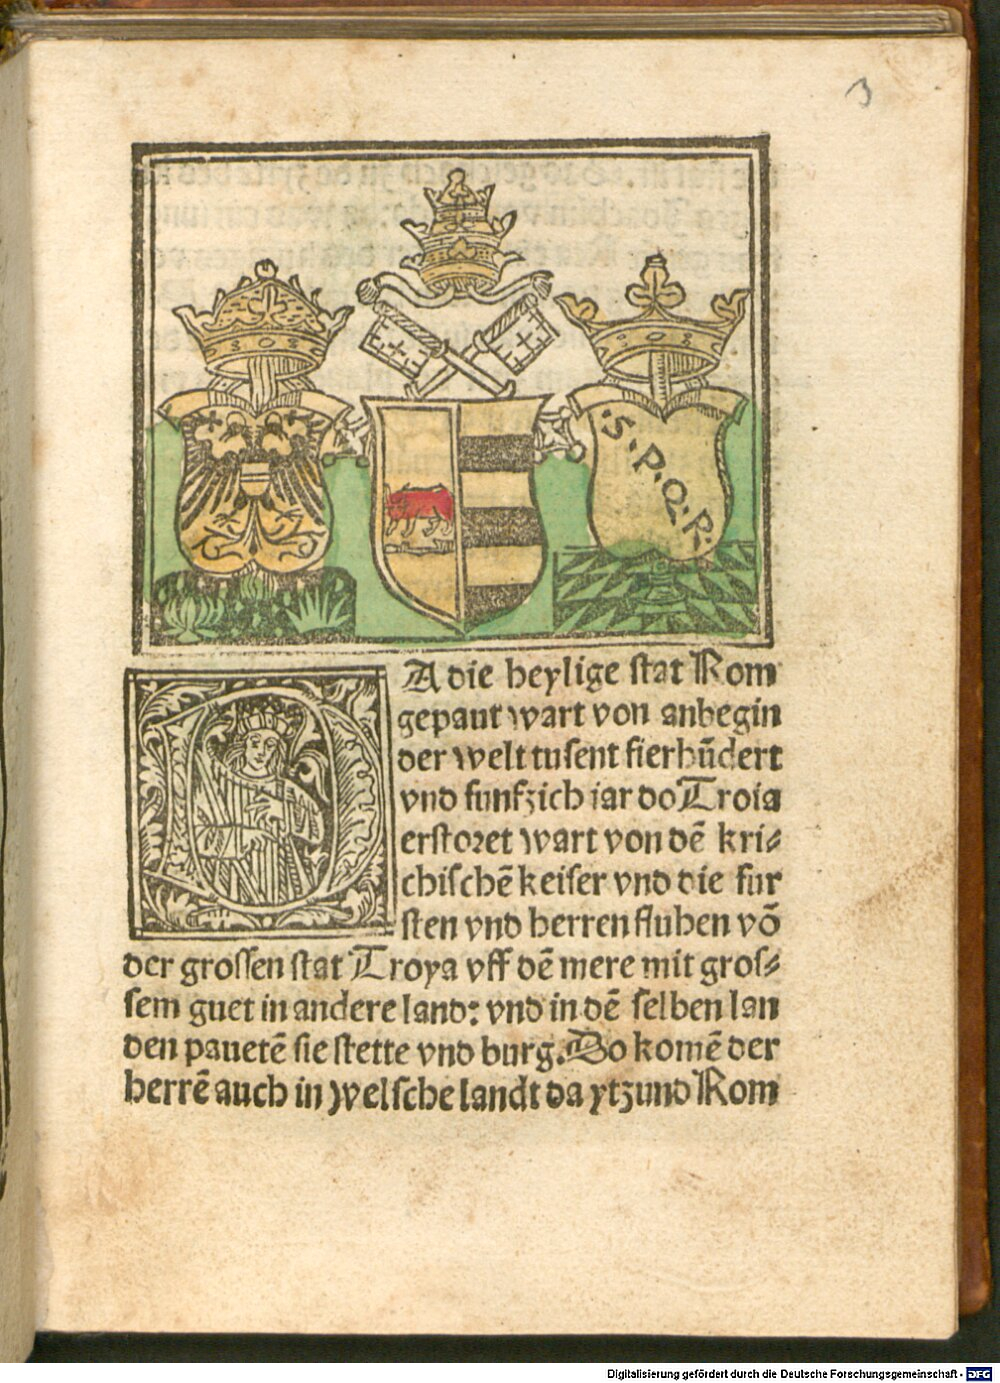 3
S.P.Q.R.
DA die heylige stat Rom
gepaut wart von anbegin
der welt tusent fierhūdert
vnd funfzich iar do Troia
erstoret wart von dē kri⸗
chischē keiser vnd die fur
sten vnd herren fluhen vō
der grossen stat Troya vff dē mere mit gros⸗
sem guet in andere land: vnd in dē selben lan
den pauetē sie stette vnd burg. Do komē der
herrē auch in welsche landt da ytzund Rom
Digitalisierung gefördert durch die Deutsche Forschungsgemeinschaft - DFG